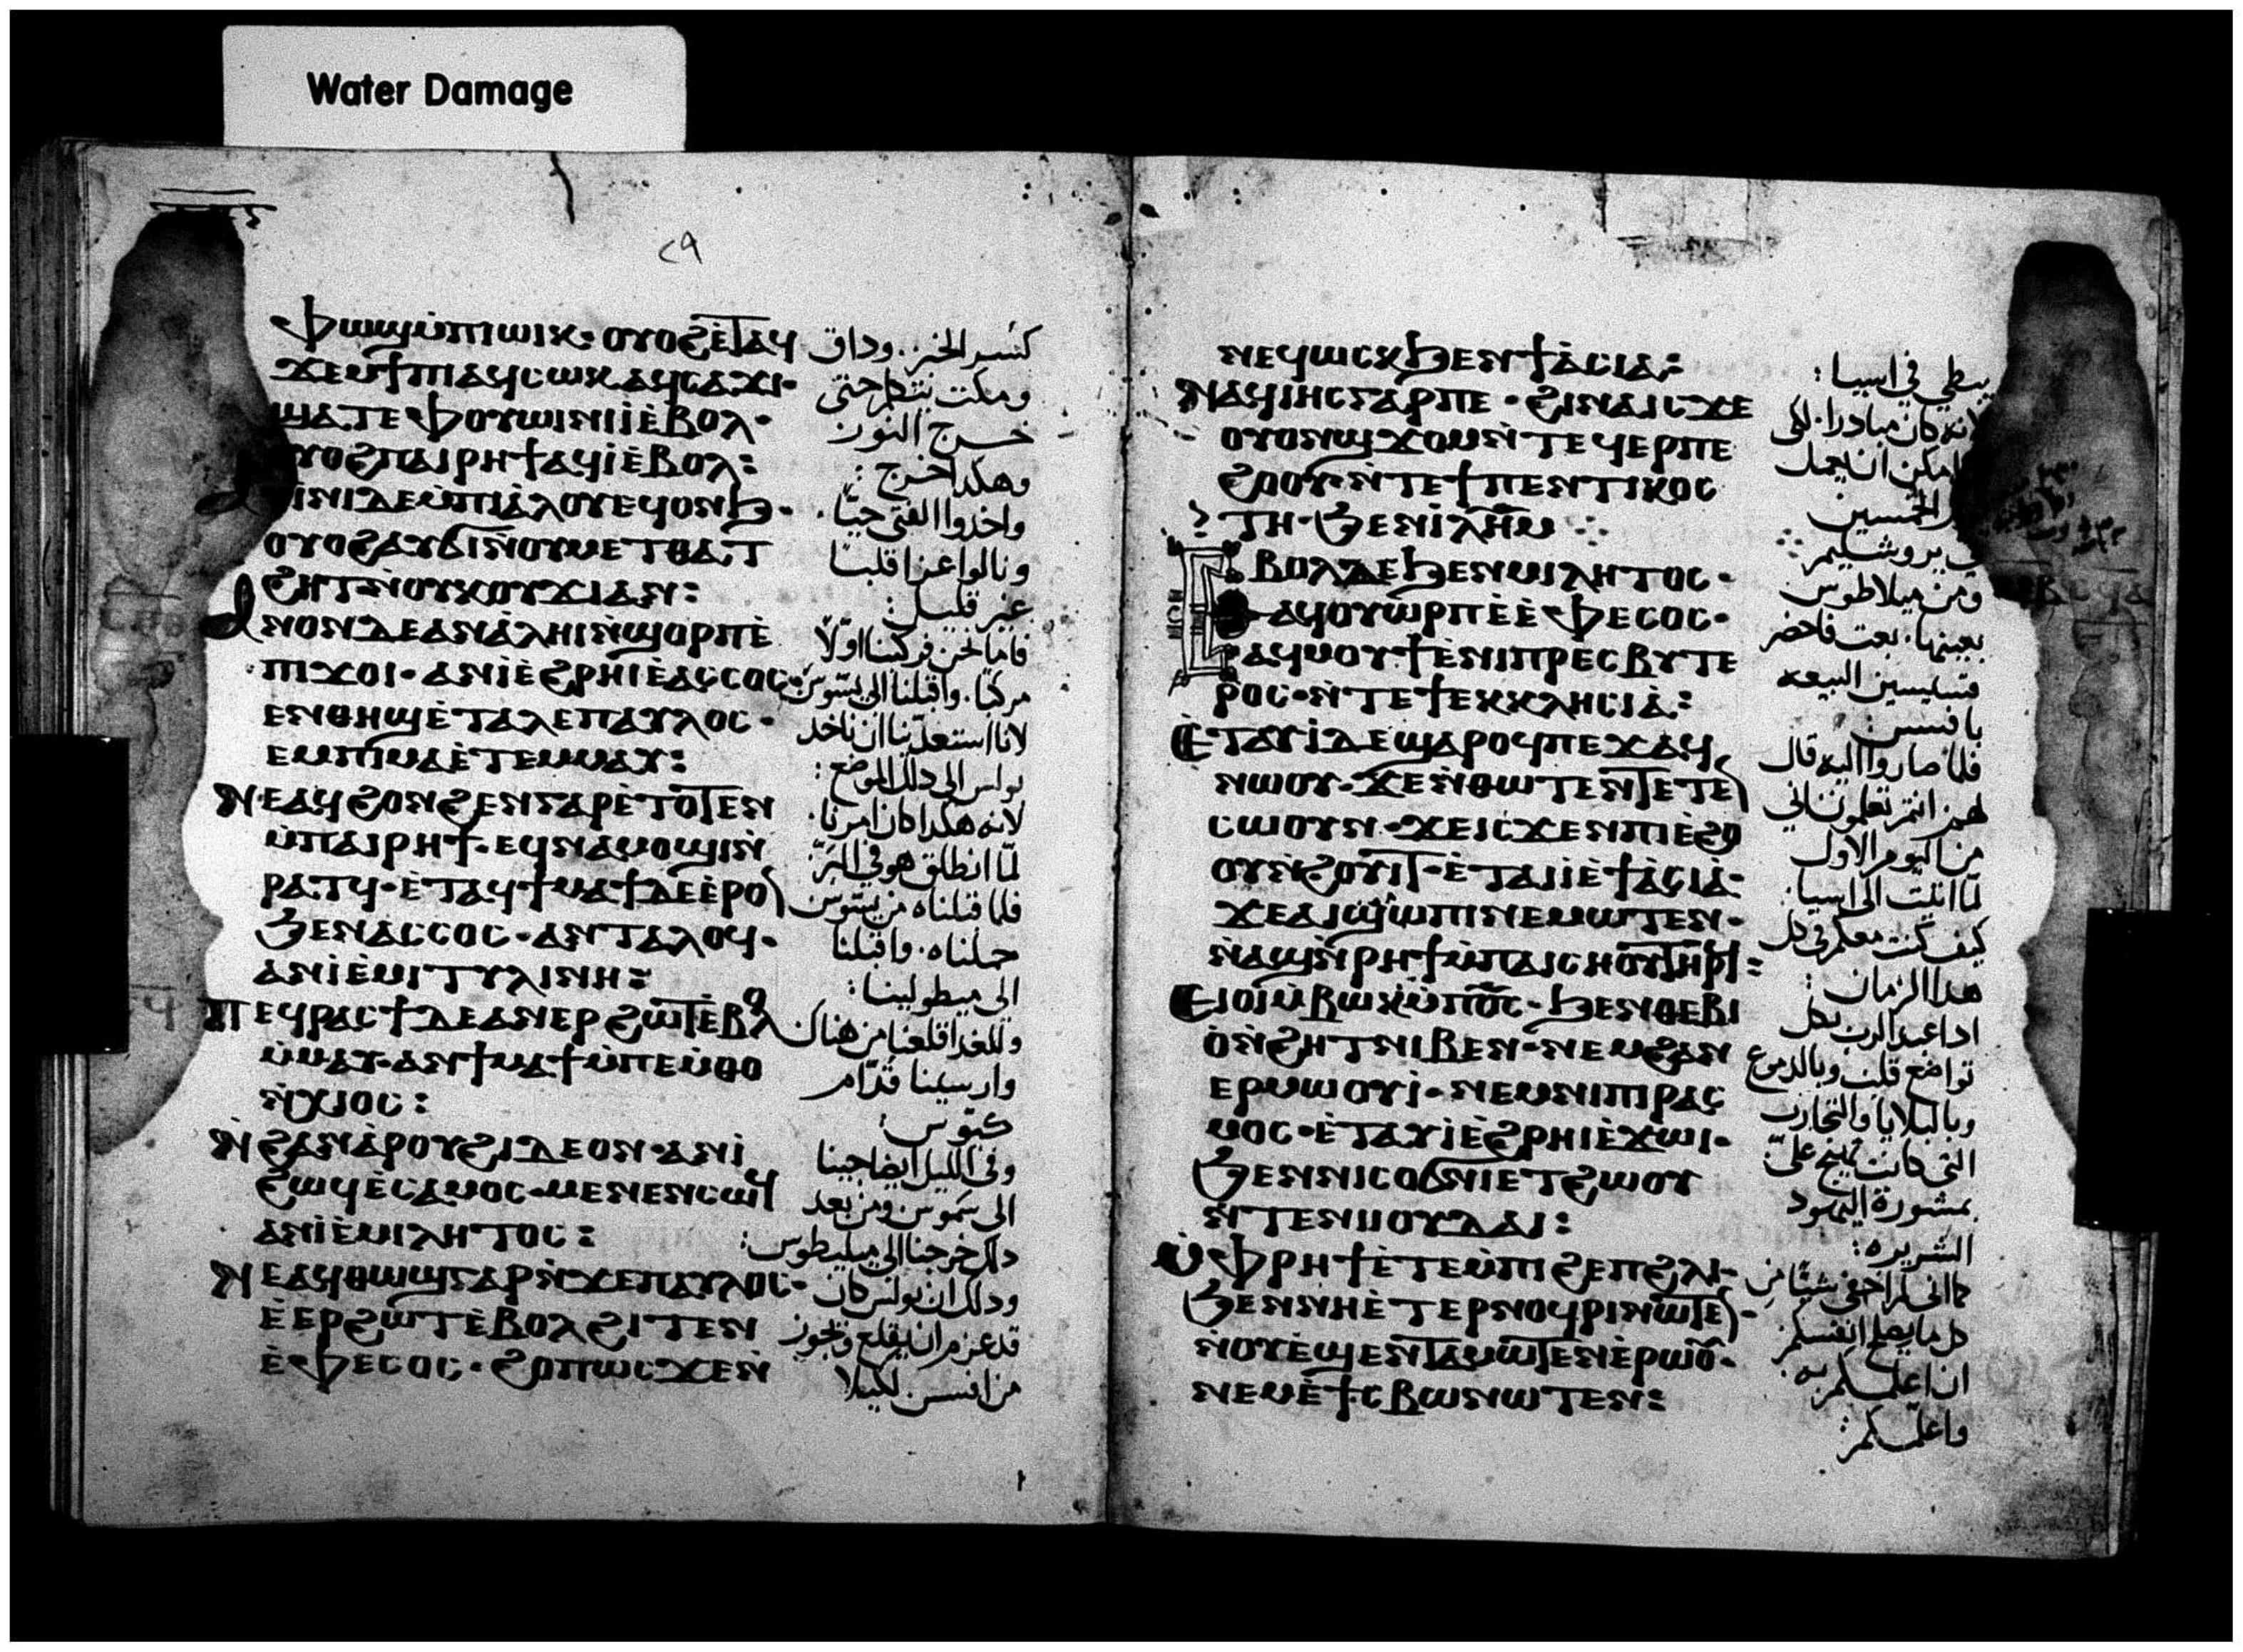 Water Damage
٢٩
ⲫⲱϣⲙ̀ⲡⲓⲱⲓⲕ· ⲟⲩⲟϩⲉ̀ⲧⲁϥ
ϫⲉⲙϯⲡⲓⲁϥⲥⲱⲕⲁϥⲥⲁϫⲓ·
ϣⲁⲧⲉⲫⲟⲩⲱⲓⲛⲓⲓ̀ⲉ̀ⲃⲟⲗ·
ⲟⲩⲟϩⲡⲁⲓⲣⲏϯⲁϥⲓ̀ⲉ̀ⲃⲟⲗ:
ⲓ̀ⲛⲓⲇⲉⲙ̀ⲡⲓⲁ̀ⲗⲟⲩⲉϥⲟⲛϧ·
ⲟⲩⲟϩⲁⲩϭⲓⲛ̀ⲟⲩⲙⲉⲧⲑⲁⲧ
ϩⲏⲧⲛ̀ⲟⲩⲕⲟⲩϫⲓⲁⲛ:
ⲁⲛⲟⲛⲇⲉⲁⲛⲁ̀ⲗⲏⲓⲛ̀ϣⲟⲣⲡⲉ̀
ⲡⲓϫⲟⲓ· ⲁⲛⲓ̀ⲉ̀ϩⲣⲏⲓⲉ̀ⲁⲥⲥⲟⲥ·
ⲉⲛⲑⲏϣⲉ̀ⲧⲁⲗⲉⲡⲁⲩⲗⲟⲥ·
ⲉⲙⲡⲓⲙⲁⲉ̀ⲧⲉⲙⲙⲁⲩ:
ⲛⲉⲁϥϩⲟⲛϩⲉⲛⲅⲁⲣⲉ̀ⲧⲟⲧⲉⲛ
ⲙ̀ⲡⲁⲓⲣⲏϯ· ⲉϥⲛⲁⲙⲟϣⲓⲛ̀
ⲣⲁⲧϥ· ⲉ̀ⲧⲁϥϯⲙⲁϯⲇⲉⲉ̀ⲣⲟ
ϧⲉⲛⲁⲥⲥⲟⲥ· ⲁⲛⲧⲁⲗⲟϥ·
ⲁⲛⲓ̀ⲉ̀ⲙⲓⲧⲩⲗⲓⲛⲏ:
ⲡⲉϥⲣⲁⲥϯⲇⲉⲁⲛⲉⲣϩⲱⲧⲉ̀ⲃⲟⲗ
ⲙ̀ⲙⲁⲩ· ⲁⲛϯⲙⲁϯⲙ̀ⲡⲉⲙ̀ⲑⲟ
ⲛ̀ⲭⲓⲟⲥ:
ⲛ̀ϩⲁⲛⲁ̀ⲣⲟⲩϩⲓⲇⲉⲟⲛ· ⲁⲛⲓ̀
ϩⲱϥⲉ̀ⲥⲁⲙⲟⲥ· ⲙⲉⲛⲉⲛⲥⲱϥ
ⲁⲛⲓ̀ⲉ̀ⲙⲓⲗⲏⲧⲟⲥ:
ⲛⲉⲁϥⲑⲱϣⲅⲁⲣⲛ̀ϫⲉⲡⲁⲩⲗⲟⲥ·
ⲉ̀ⲉⲣϩⲱⲧⲉ̀ⲃⲟⲗϩⲓⲧⲉⲛ
ⲉ̀ⲫⲉⲥⲟⲥ· ϩⲟⲡⲱⲥϫⲉⲛ̀
كسر الخبز. وداق
ومكت ينتظر حتى
خرج النور
وهكدا خرج:
واخدوا الفتى حيّا.
ونالوا عزا قلبنا
غير قليل:
فاما نحن فركبنا اولًا
مركبًا. واقبلنا الى يسّوس
لانا استعدّينا ان ناخد
بولس الى دلك الموضع:
لانه هكدا كان امرنا.
لمّا انطلق هو في البرّ
فلما قبلناه من يسّوس
حملناه. واقبلنا
الى ميطولينا:
وللغد اقلعنا من هناك
وارسينا قدّام
كيّوس:
وفي الليل ايضا جينا
الى سموس ومن بعد
دلك خرجنا الى ميليطوس:
ودلك ان بولس كان
قد عزم ان يقلع ويجوز
من افسس لكيلا
ⲛⲉϥⲱⲥⲕϧⲉⲛϯⲁ̀ⲥⲓⲁ:
ⲛⲁϥⲓⲏⲥⲅⲁⲣⲡⲉ· ϩⲓⲛⲁⲓⲥϫⲉ
ⲟⲩⲟⲛϣϫⲟⲙⲛ̀ⲧⲉϥⲉⲣⲡⲉ
ϩⲟⲟⲩ· ⲛ̀ⲧⲉϯⲡⲉⲛⲧⲓⲕⲟⲥ
ⲧⲏ· ϧⲉⲛⲓ̀ⲗⲏ̅ⲙ̅
ⲉⲃⲟⲗⲇⲉϧⲉⲛⲙⲓⲗⲏⲧⲟⲥ·
ⲁϥⲟⲩⲱⲣⲡⲉ̀ⲉ̀ⲫⲉⲥⲟⲥ·
ⲁϥⲙⲟⲩϯⲉ̀ⲛⲓⲡⲣⲉⲥⲃⲩⲧⲉ
ⲣⲟⲥ· ⲛ̀ⲧⲉϯⲉⲕⲕⲗⲏⲥⲓⲁ̀:
ⲉ̀ⲧⲁⲩⲓ̀ⲇⲉϣⲁⲣⲟϥⲡⲉϫⲁϥ
ⲛⲱⲟⲩ· ϫⲉⲛ̀ⲑⲱⲧⲉⲛⲧⲉⲧⲉ
ⲥⲱⲟⲩⲛ· ϫⲉⲓⲥϫⲉⲛⲡⲓⲉ̀ϩⲟ
ⲟⲩⲛ̀ϩⲟⲩⲓⲧ· ⲉ̀ⲧⲁⲓⲓ̀ⲉ̀ϯⲁ̀ⲥⲓⲁ̀·
ϫⲉⲁⲓϣⲱⲡⲓⲛⲉⲙⲱⲧⲉⲛ·
ⲛ̀ⲁϣⲛ̀ⲣⲏϯⲙ̀ⲡⲁⲓⲥⲏⲟⲩⲧⲏⲣϥ:
ⲉⲓⲟⲓⲙ̀ⲃⲱⲕⲙ̀ⲡⲟ̅ⲥ̅· ϧⲉⲛⲑⲉⲃⲓ
ⲟ̀ⲛ̀ϩⲏⲧⲛⲓⲃⲉⲛ· ⲛⲉⲙϩⲁⲛ
ⲉⲣⲙⲱⲟⲩⲓ̀· ⲛⲉⲙⲛⲓⲡⲓⲣⲁⲥ
ⲙⲟⲥ· ⲉ̀ⲧⲁⲩⲓ̀ⲉ̀ϩⲣⲏⲓⲉ̀ϫⲱⲓ·
ϧⲉⲛⲛⲓⲥⲟϭⲛⲓⲉⲧϩⲱⲟⲩ
ⲛ̀ⲧⲉⲛⲓⲓⲟⲩⲇⲁⲓ:
ⲙ̀ⲫⲣⲏϯⲉ̀ⲧⲉⲙ̀ⲡⲓϩⲉⲡϩⲗⲓ·
ϧⲉⲛⲛⲏⲉ̀ⲧⲉⲣⲛⲟϥⲣⲓⲛⲱⲧⲉ·
ⲛ̀ⲟⲩⲉ̀ϣⲉⲛⲧⲁⲙⲱⲧⲉⲛⲉ̀ⲣⲱⲟ̅·
ⲛⲉⲙⲉ̀ϯⲥⲃⲱⲛⲱⲧⲉⲛ:
يبطي في اسيا:
لانه كان مبادرا. لكى
امكن ان يعمل
الخمسين
يروشليم
ومن ميلاطوس
بعينها. بعت فاحضر
قسيسين البيعه
بافسس:
فلما صاروا اليه قال
لهم انتم تعلمون انى
من اليوم الاول
لمّا اتيت الى اسيا:
كيف كنت معكم في كل
هدا الزمان:
اداعبد الرب بكل
تواضع قلب وبالدموع
وبالبلايا والتجارب
التى كانت تهيج علىّ
بمشورة اليهود
الشريره:
كما انى لم اخفى شيًّا من
كل ما يصلح لنفسكم
ان اعلمكم به.
واعلّمكم: